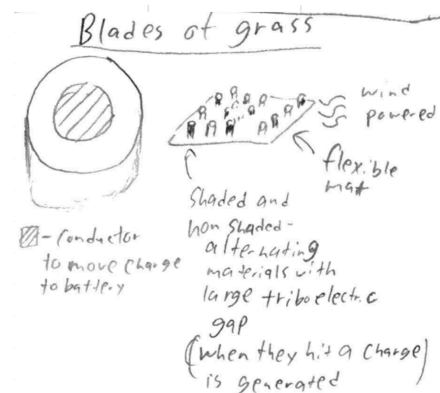 Blades of grass
wind
powered
flexible
mat
shaded and
non shaded-
alternating
materials with
large triboelectric
gap
(when they hit a charge)
is generated
- Conductor
to move charge
to battery